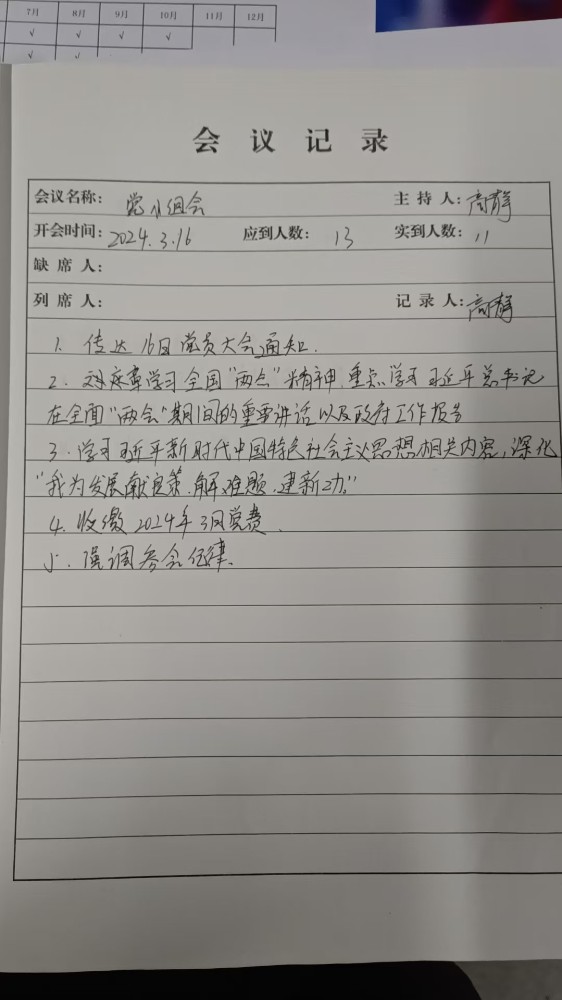 7月 8月 9月 10月 11月 12月
√ √ √ √
√ √
会议记录
会议名称: 党小组会 主持人: 高静
开会时间: 2024.3.16 应到人数: 13 实到人数: 11
缺席人:
列席人: 记录人: 高静
1. 传达16日党员大会通知.
2. 学习全国"两会"精神.重点学习习近平总书记
在全面"两会"期间的重要讲话以及政府工作报告
3. 学习习近平新时代中国特色社会主义思想相关内容,深化
"我为发展献良策、解难题、建新功"
4. 收缴2024年3月党费.
5. 强调参会纪律.